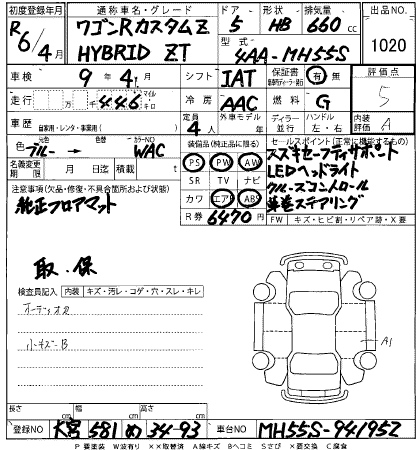 初度登録年月 通称車名・グレード ドア 形状 排気量 出品NO.
R6/4月 ワゴンRカスタムZ HYBRID ZT 5 HB 660cc 1020
型式 4AA-MH55S
車検 9年4月 シフト IAT 保証書 有 無 評価点 5
走行 万 千 446 マイル キロ 冷房 AAC 燃料 G 内装評価 A
車歴 自家用・レンタ・事業用( ) 定員 4人 外車モデル 年 ディーラー 並行 ハンドル 左・右
色 ブルー→ 色替 カラーNO WAC 装備品(純正品に限る) セールスポイント(正常に機能するもの)
名義変更期限 月 日迄 積載量 t PS PW AW スズキセーフティサポート
注意事項(欠品・修復・不具合箇所および状態) SR TV ナビ LEDヘッドライト
純正フロアマット カワ エアB ABS クルーズコントロール
革巻ステアリング
R券 6470円 FW キズ・ヒビ割・リペア跡・X要
取・保
検査員記入 内装 キズ・汚レ・コゲ・穴・スレ・キレ
オーディオレス
小キズB
A1
長さ cm 幅 cm 高さ cm
登録NO 大宮 581 め 34-93 車台NO MH55S-941952
P 要塗装 W波有り ××取替済 A線キズ Bヘコミ Sさび ×要交換 C腐食